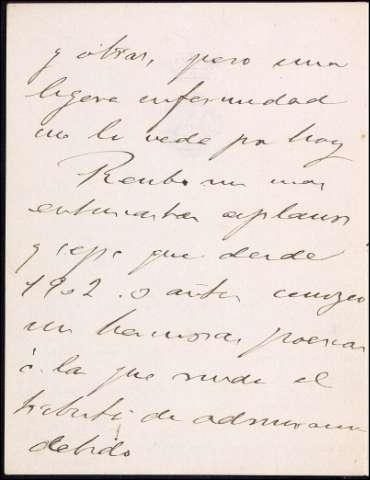 y obras, pero una
ligera enfermedad
me lo veda por hoy
Reciba mis mas
entusiastas aplausos
y sepa que desde
1902 o antes conozco
sus hermosas poesias
á la que rinde el
tributo de admiracion
debido